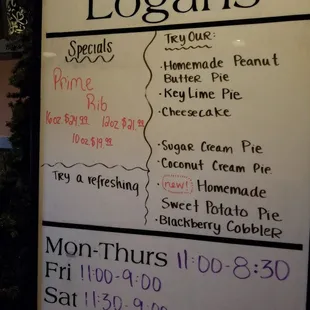 Logans
Specials
Prime
Rib
16oz $24.99 12oz $21.99
10oz $19.99
Try a refreshing
Try Our:
·Homemade Peanut
Butter Pie
·Key Lime Pie
·Cheesecake
·Sugar Cream Pie
·Coconut Cream Pie
·new! Homemade
Sweet Potato Pie
·Blackberry Cobbler
Mon-Thurs 11:00-8:30
Fri 11:00-9:00
Sat 11:30-9:00